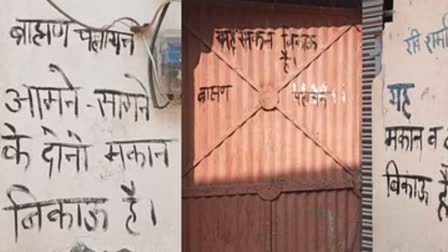 ब्राह्मण पलायन
आमने-सामने
के दोनो मकान
बिकाऊ है।
यह मकान बिकाऊ
है।
ब्राह्मण
यह
मकान व
बिकाऊ है